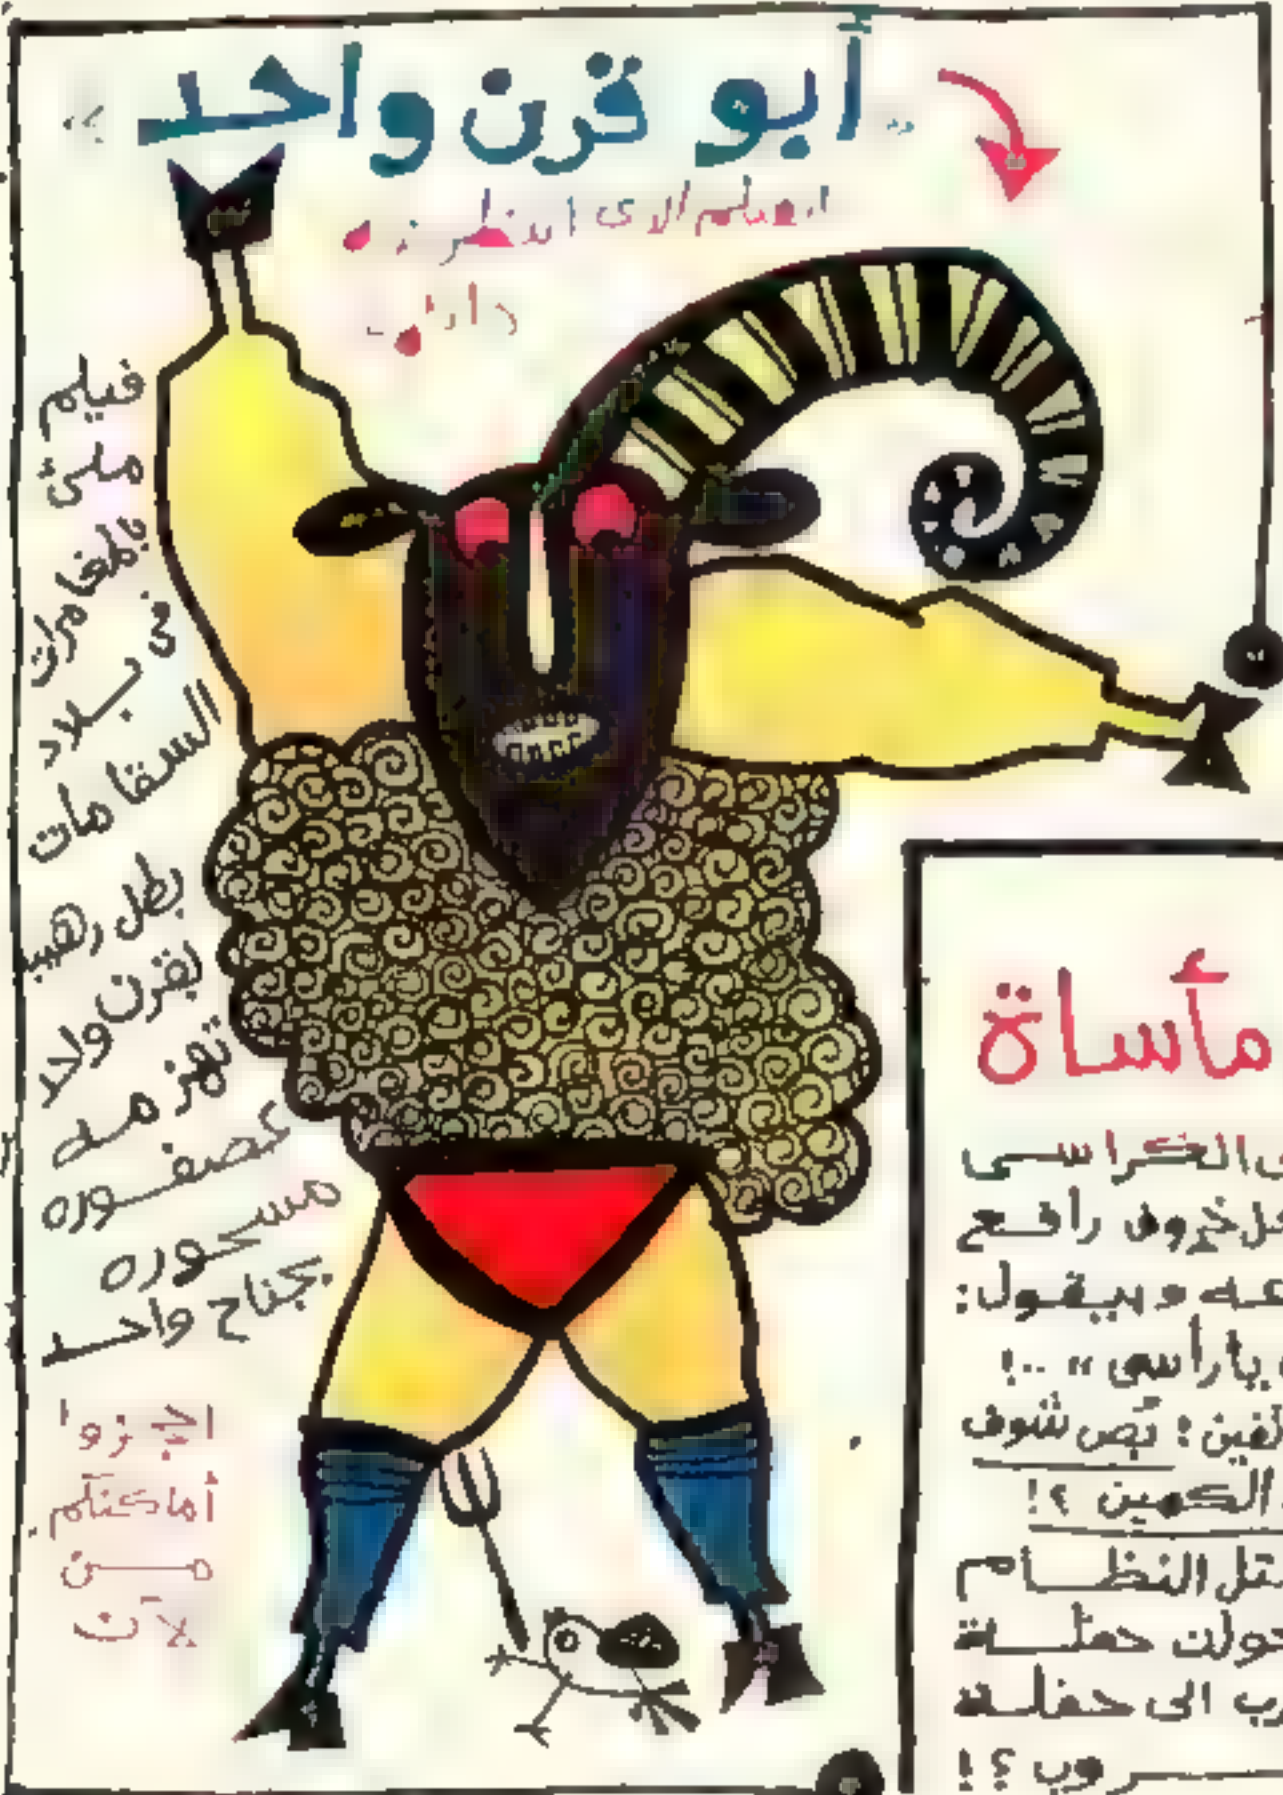 « أبو قرن واحد »
الفيلم الذى انتظرته
فيلم
ملئ
بالمغامرات
فى
بلاد
السقامات
بطل رهيب
بقرن واحد
تهزمه
عصفوره
مسحوره
بجناح واحد
احجزوا
أماكنكم
من
لآن
مأساة
الكراسى
خروف رافع
وبيقول:
ياراسى » ..!
بُص شوف
الكمين ؟!
النظام
حفلة
الى حفلة
؟!